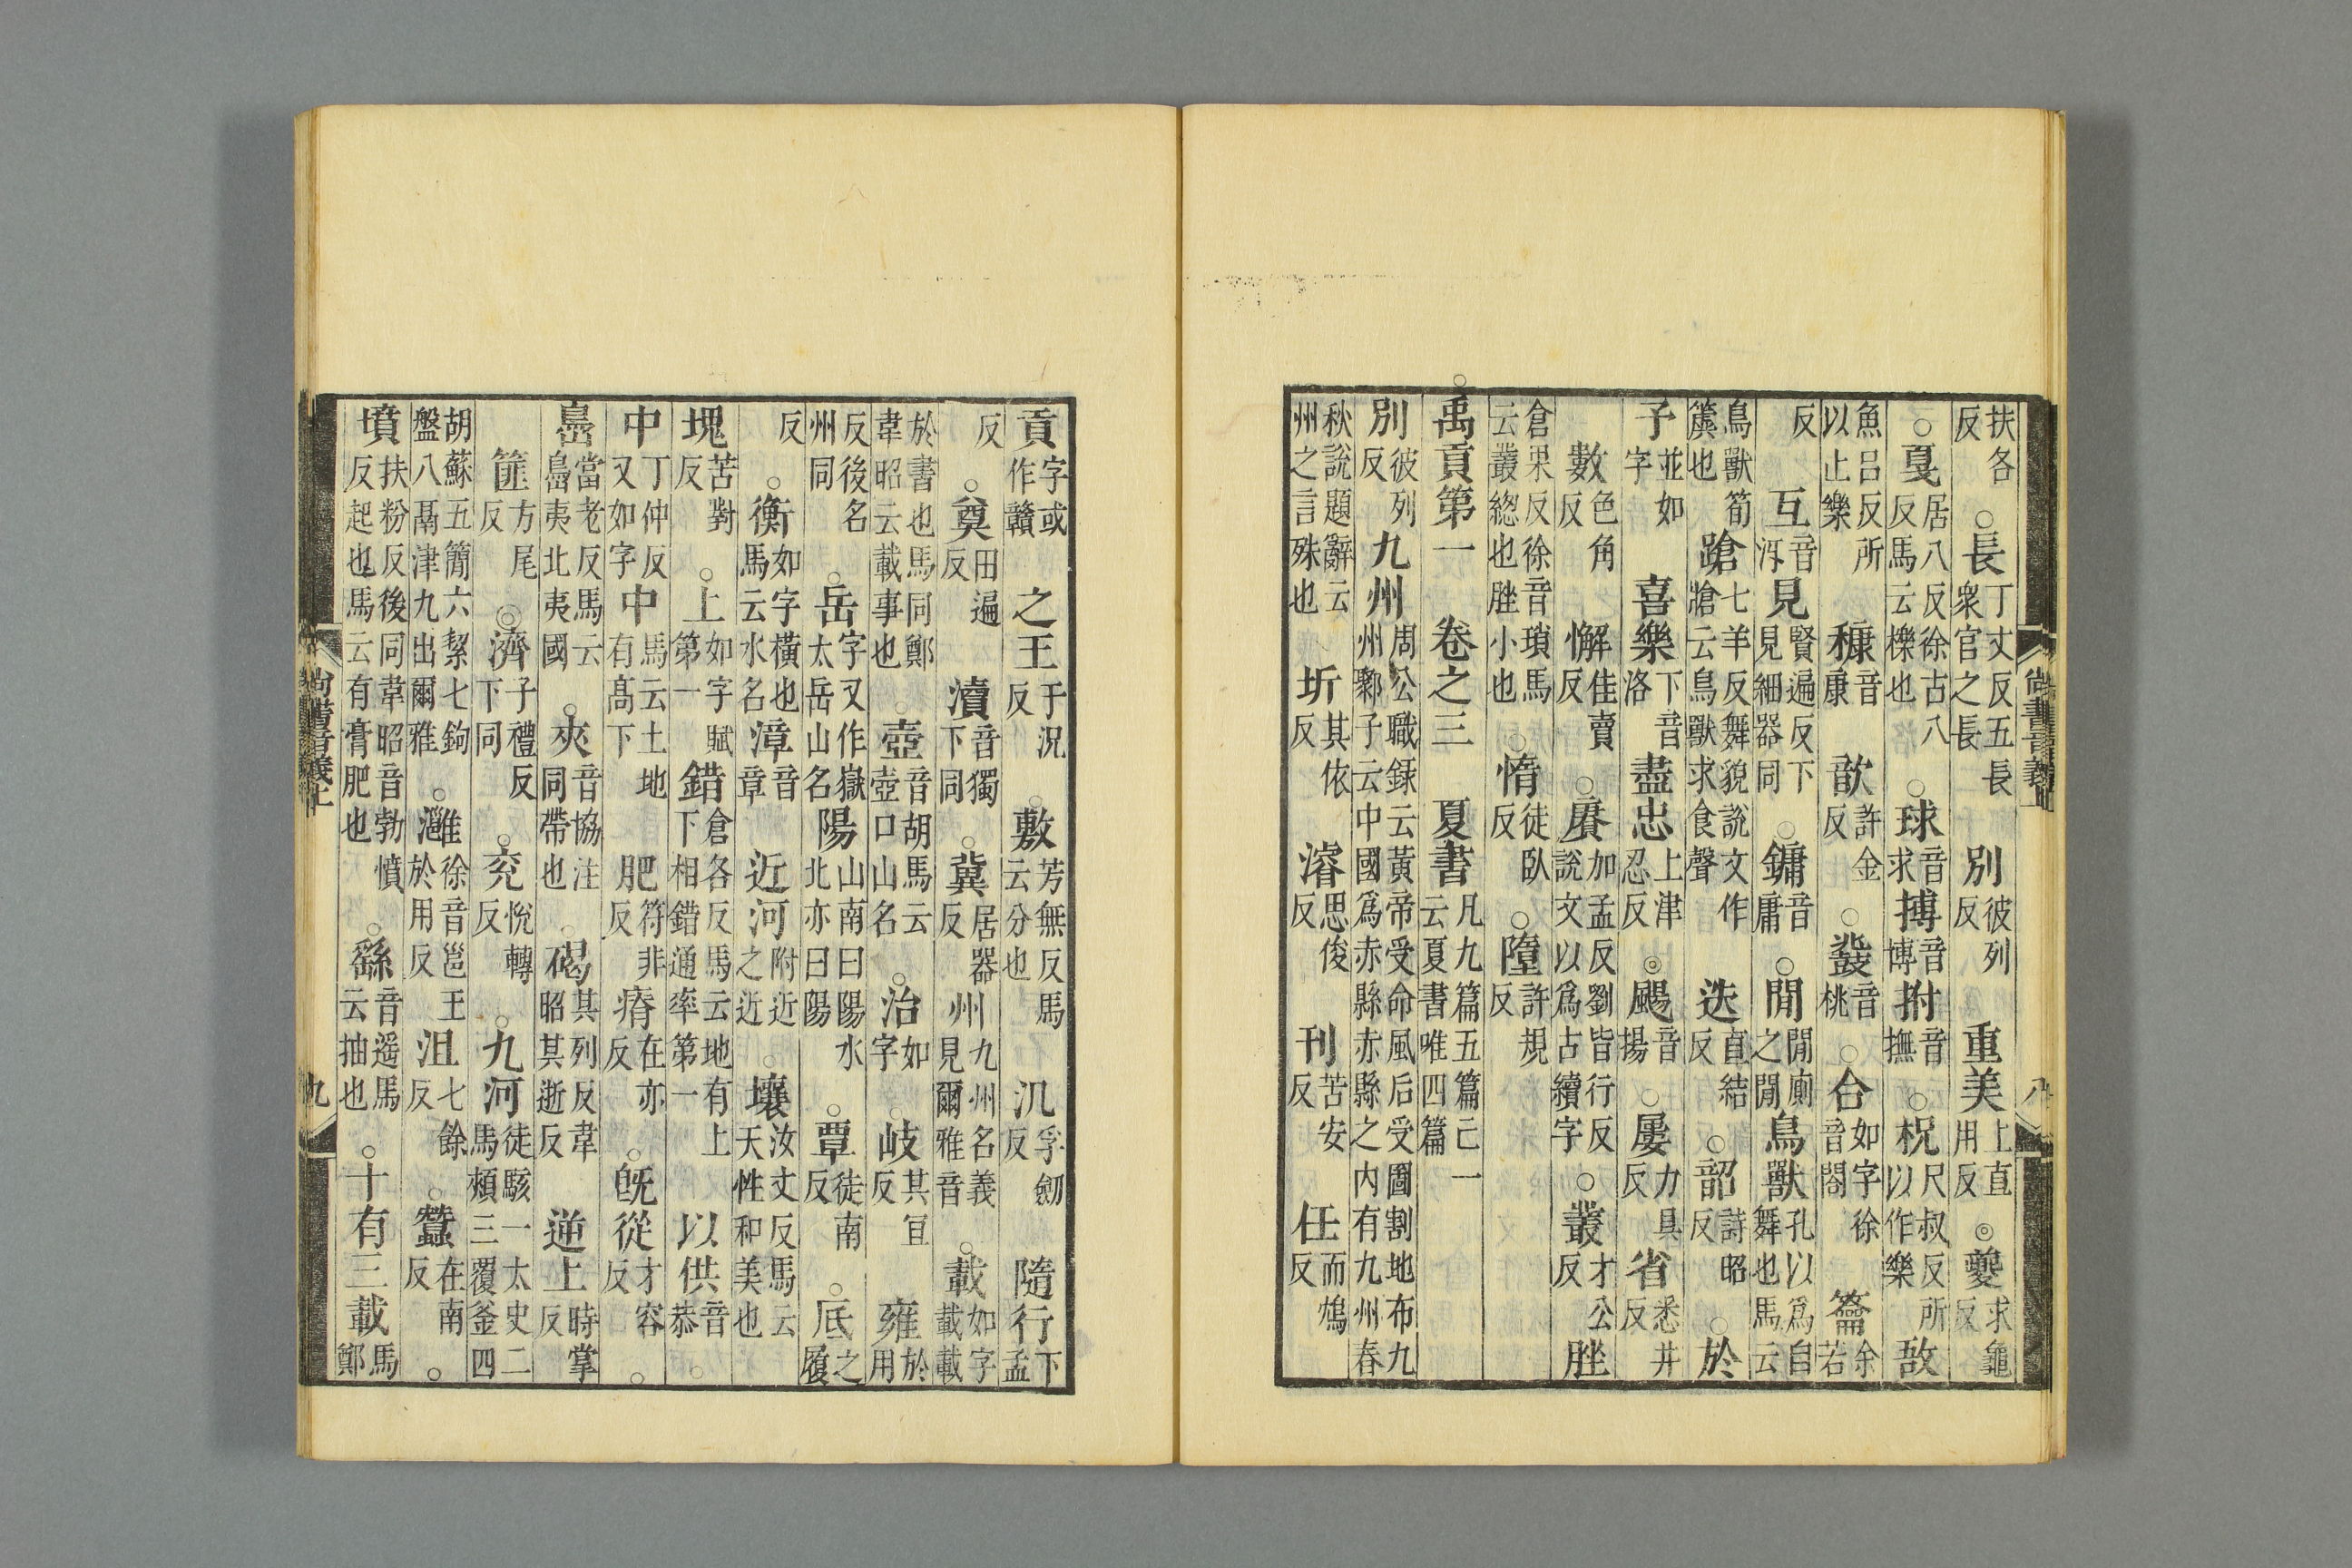 尚書音義上 八
扶各反 ○長丁丈反五長衆官之長 別彼列反 重美上直用反 ◎夔求龜反
○戛居八反徐古八反馬云櫟也 ○球音求 搏音博 拊音撫 ○柷尺叔反所以作樂 敔
魚呂反所以止樂 穅音康 歆許金反 ○鼗音桃 ○合如字徐音閤 籥余若
反 互音沍 見賢遍反下見細器同 ○鏞音庸 ○閒閒廁之閒 鳥獸孔以爲自舞也馬云
鳥獸筍簴也 蹌七羊反舞貌說文作牄云鳥獸求食聲 迭直結反 ○韶詩昭反 ○於
予並如字 喜樂下音洛 盡忠上津忍反 ◎颺音揚 ○屢力具反 省悉井反
數色角反 懈佳賣反 ○賡加孟反劉皆行反說文以爲古續字 ○叢才公反 脞
倉果反徐音瑣馬云叢緫也脞小也 ○惰徒臥反 ○墮許規反
○禹貢第一 卷之三 夏書凡九篇五篇亡一云夏書唯四篇
別彼列反 九州周公職錄云黃帝受命風后受圖割地布九州鄹子云中國爲赤縣赤縣之內有九州春
秋說題辭云州之言殊也 圻其依反 濬思俊反 刊苦安反 任而鴆反
貢字或作贛 之王于況反 ○敷芳無反馬云分也 汎孚劒反 隨行下孟
反 ○奠田遍反 瀆音獨下同 ○冀居器反 州九州名義見爾雅音 ○載如字載載
於書也馬同鄭韋昭云載事也 ○壺音胡馬云壺口山名 ○治如字 ○岐其宜反 雍於用
反後名州同 ○岳字又作嶽太岳山名 陽山南曰陽水北亦曰陽 ○覃徒南反 ○厎之履
反 ○衡如字橫也馬云水名 漳音章 近河附近之近 ○壤汝丈反馬云天性和美也
塊苦對反 ○上如字賦第一 錯倉各反馬云地有上下相錯通率第一 以供音恭 ○
中丁仲反又如字 中馬云土地有高下 肥符非反 瘠在亦反 ○旣從才容反 ○
㠀當老反馬云㠀夷北夷國 ○夾音協注同帶也 ○碣其列反韋昭其逝反 逆上時掌反
篚方尾反 ◎濟子禮反下同 ○兗悅轉反 ○九河徒駭一太史二馬頰三覆釜四
胡蘇五簡六絜七鉤盤八鬲津九出爾雅 ○灉徐音邕王於用反 沮七餘反 ○蠶在南反 ○
墳扶粉反後同韋昭音勃憤反起也馬云有膏肥也 ○繇音遙馬云抽也 ○十有三載馬鄭
尚書音義上 九